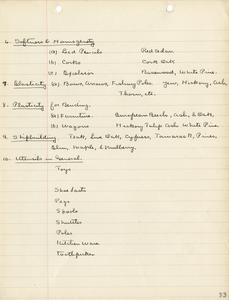 6. Softness & Homogeneity
(a) Lead Pencils Red Cedar
(b) Corks Cork Oak
(c) Excelsior Basswood, White Pine.
7. Elasticity (a) Bows, Arrows, Fishing Poles. Yew, Hickory, Ash,
Thorn, etc.
8. Plasticity for Bending.
(a) Furniture. European Beech, Ash, & Oak.
(b) Wagons Hickory Tulip Ash White Pine
9. Shipbuilding Teak, Live Oak, Cypress, Tamarack, Pines,
Elm, Maple, & Mulberry.
10. Utensils in General.
Toys
Shoe lasts
Pegs
Spools
Shuttles
Poles
Kitchen Ware
Toothpicks
33